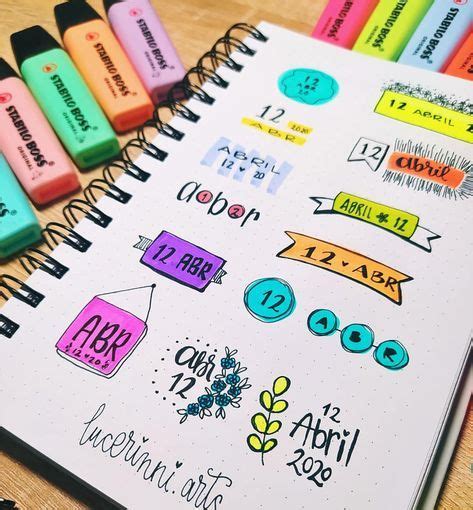 STABILO BOSS
ORIGINAL
STABILO BOSS
ORIGINAL
STABILO BOSS
ORIGINAL
STABILO BOSS
STABILO BOSS
STABILO BOSS
STABILO BOSS
12
ABR
20
12 ABRIL
12 2020
ABR
12
abril
ABRIL
12 ♥ 20
abor
1 2
ABRIL 12
12 ABR
12 ♥ ABR
12
A B R
ABR
12 ♥ 20
abr
12
12
Abril
2020
lucerinni.arts